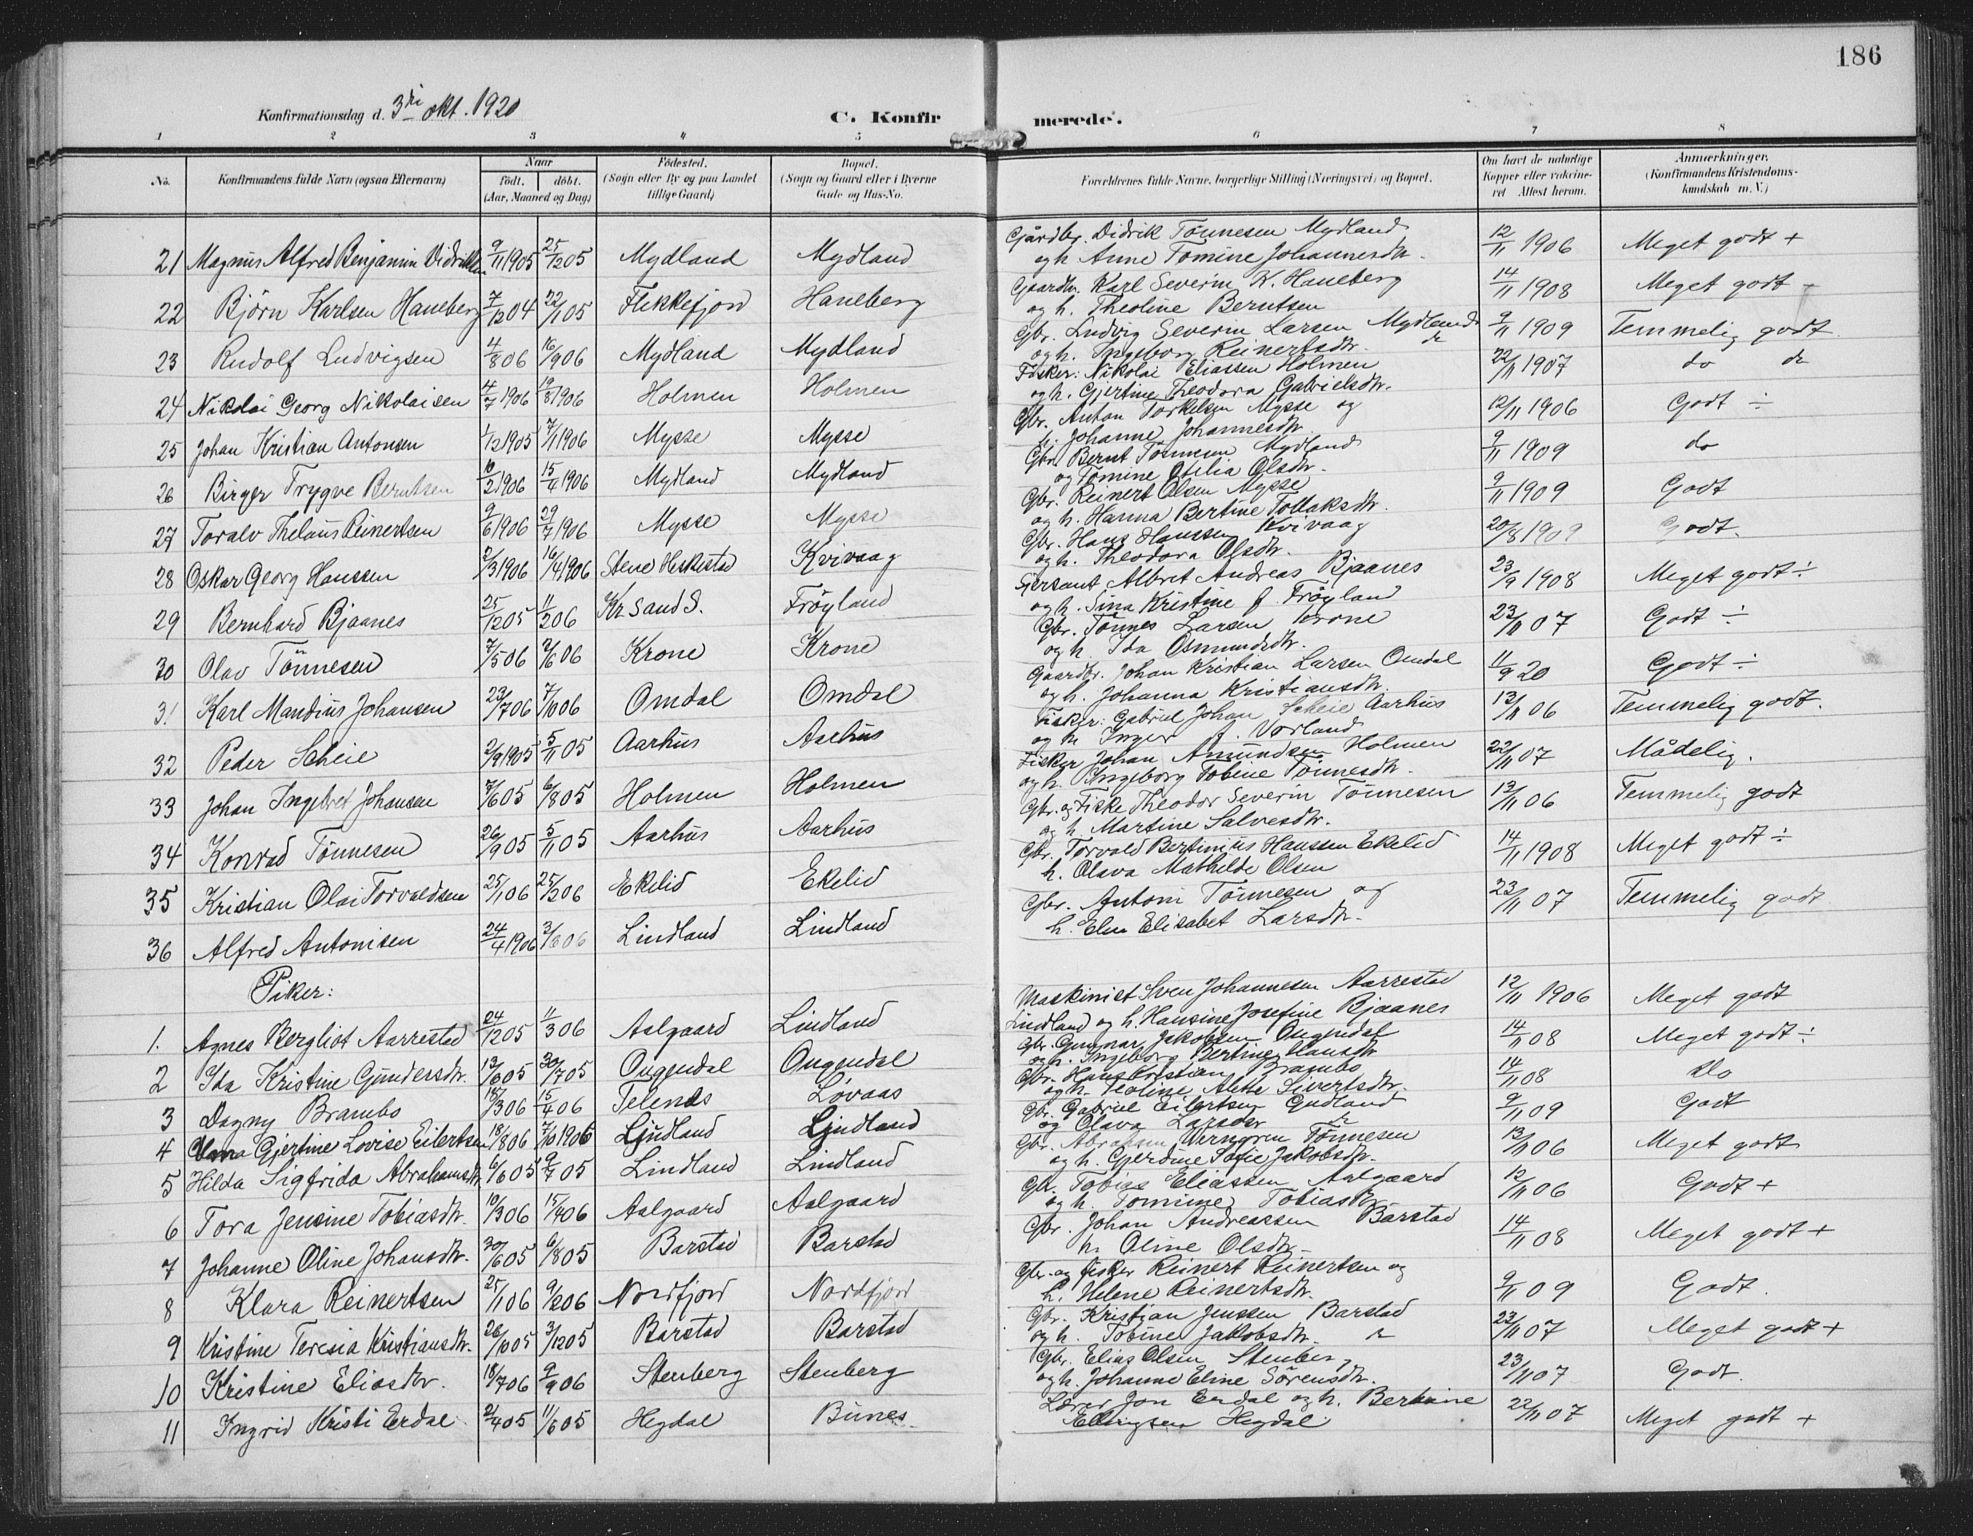 186
Konfirmationsdag d. 3di okt. 1920
C. Konfirmerede.
1 2 3 4 5 6 7 8
No. Konfirmandens fulde Navn (ogsaa Efternavn) Naar født. døbt. (Aar, Maaned og Dag) Fødested. (Sogn eller By og paa Landet tillige Gaard) Bopæl. (Sogn og Gaard eller i Byerne Gade og Hus-No. Forældrenes fulde Navne, borgerlige Stilling (Næringsvei) og Bopæl. Om havt de naturlige Kopper eller vaccineret Attest herom. Anmærkninger. (Konfirmandens Kristendomskundskab m. V.)
21 Magnus Alfred Benjamin Didriksen 9/11 1905 25/12 05 Mydland Mydland Gårdbr. Didrik Tönnesen Mydland og h. Anne Tomine Johannesdtr. 12/11 1906 Meget godt +
22 Björn Karlsen Haneberg 7/12 04 22/1 05 Flekkefjord Haneberg Gaardbr. Karl Severin K. Haneberg og h. Theoline Berntsen 14/11 1908 Meget godt -
23 Rudolf Ludvigsen 4/8 06 16/9 06 Mydland Mydland Gbr. Ludvig Severin Larsen Mydland og h. Ingeborg Reinertsdtr. 9/11 1909 Temmelig godt
24 Nikolai Georg Nikolaisen 4/7 1906 19/8 1906 Holmen Holmen Fisker: Nikolai Eliassen Holmen og h. Gjertine Theodora Gabrielsdtr. 22/11 1907 do do
25 Johan Kristian Antonsen 1/12 1905 7/1 1906 Mysse Mysse Gbr. Anton Torkelsen Mysse og h. Johanne Johannesdtr. 12/11 1906 Godt ÷
26 Birger Trygve Berntsen 10/2 1906 15/4 1906 Mydland Mydland Gbr. Bernt Tönnesen Mydland og Tomine Otilia Olsdtr. 9/11 1909 do
27 Toralv Thelaus Reinertsen 9/6 1906 29/7 1906 Mysse Mysse Gbr. Reinert Olsen Mysse og h. Hanna Bertine Tollaksdtr. 9/11 1909 Godt
28 Oskar Georg Hanssen 2/3 1906 16/4 1906 Stene Heskestad Kvivaag Gbr. Hans Hanssen Kvivaag og h. Theodora Olsdtr. 20/8 1909 Godt.
29 Bernhard Bjaanes 25/12 05 11/2 06 Kr.sand S. Fröyland Sersant Albret Andreas Bjaanes og h. Sina Kristine f. Fröyland 23/9 1908 Meget godt ÷
30 Olav Tönnesen 7/5 06 2/6 06 Krone Krone Gbr. Tönnes Larsen Krone og h. Ida Osmundsdtr. 23/11 07 Godt ÷
31 Karl Mandius Johansen 23/7 06 7/10 06 Omdal Omdal Gaardbr. Johan Kristian Larsen Omdal og h. Johanna Kristiansdtr. 11/9 20 Godt ÷
32 Peder Scheie 2/9 1905 5/11 05 Aarhus Aarhus Fisker: Gabriel Johan Scheie Aarhus og h. Inger f. Vorland 13/11 06 Temmelig godt.
33 Johan Ingebret Johansen 7/6 05 6/8 05 Holmen Holmen Fisker Johan Amundsen Holmen og h. Ingeborg Tobine Tönnesdtr. 22/11 07 Mådelig.
34 Konrad Tönnesen 26/9 05 5/11 05 Aarhus Aarhus Gbr. og Fiske Theodor Severin Tönnesen og h. Martine Salvesdtr. 13/11 06 Temmelig godt
35 Kristian Olai Torvaldsen 25/1 06 25/2 06 Ekelid Ekelid Gbr. Torvald Bertinius Hanssen Ekelid h. Olava Mathilde Olsen 14/11 1908 Meget godt ÷
36 Alfred Antonisen 24/4 1906 3/6 06 Lindland Lindland Gbr. Antoni Tönnesen og h. Elen Elisabet Larsdtr. 23/11 07 Temmelig godt
Piker:
1. Agnes Bergliot Aarrestad 24/12 05 11/3 06 Aalgaard Lindland Maskinist Sven Johannesen Aarrestad Lindland og h. Hansine Josefine Bjaanes 12/11 1906 Meget godt
2 Ida Kristine Gundersdtr. 13/6 05 30/7 05 Ougendal Ougendal Gbr. Gunnar Jakobsen Ougendal og h. Ingeborg Bertine Hansdtr 14/11 08 Meget godt ÷
3 Dagny Brambo 18/3 06 15/4 06 Telenes Løvaas Gbr. Hans Kristian Brambo og h. Teoline Alette Sivertsdtr. 14/11 08 do
4 Gjertine Lovise Eilertsen 18/8 06 7/10 1906 Lindland Lindland Gbr. Gabriel Eilertsen Gudland og Olava Larsdtr 9/11 09 Godt
5 Hilda Sigfrida Abrahamsdtr. 6/6 05 9/7 05 Lindland Lindland Gbr. Abraham Tönnesen og h. Gjerdine Sofie Jakobsdtr. 13/11 06 Meget godt
6 Tora Jensine Tobiasdtr. 10/3 06 15/4 06 Aalgaard Aalgaard Gbr. Tobias Eliassen Aalgaard og h. Tomine Tobiasdtr 12/11 06 Godt +
7 Johanne Oline Johansdtr. 30/6 05 6/8 05 Barstad Barstad Gbr. Johan Andreassen Barstad h. Oline Olsdtr. 14/11 08 Meget godt +
8 Klara Reinertsen 25/1 06 9/2 06 Nordfjord Nordfjord Gbr. og Fisker Reinert Reinertsen og h. Helene Reinertsdtr. 9/11 09 Godt.
9 Kristine Teresia Kristiansdtr. 26/10 05 3/12 05 Barstad Barstad Gbr. Kristian Jenssen Barstad og h. Tobine Jakobsdtr. 22/11 07 Meget godt +
10 Kristine Eliasdtr. 18/7 06 9/9 06 Stenberg Stenberg Gbr. Elias Olsen Stenberg og h. Johanne Eline Sörensdtr. 23/11 07 Godt.
11 Ingrid Kristi Erdal 21/4 05 11/6 05 Hegdal Bunes Lærer Jon Erdal og h. Bertine Ellingsen Hegdal 22/11 07 Meget godt +